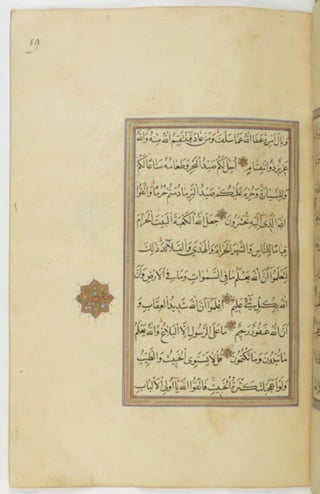 89
وبال امره عفا الله عما سلف ومن عاد فينتقم الله منه والله
عزيز ذو انتقام احل لكم صيد البحر وطعامه متاعا لكم
وللسيارة وحرم عليكم صيد البر ما دمتم حرما واتقوا
الله الذي اليه تحشرون جعل الله الكعبة البيت الحرام
قياما للناس والشهر الحرام والهدي والقلائد ذلك
لتعلموا ان الله يعلم ما في السموات وما في الارض وان
الله بكل شيء عليم اعلموا ان الله شديد العقاب و
ان الله غفور رحيم ما على الرسول الا البلاغ والله يعلم
ما تبدون وما تكتمون قل لا يستوي الخبيث والطيب
ولو اعجبك كثرة الخبيث فاتقوا الله يا اولي الالباب